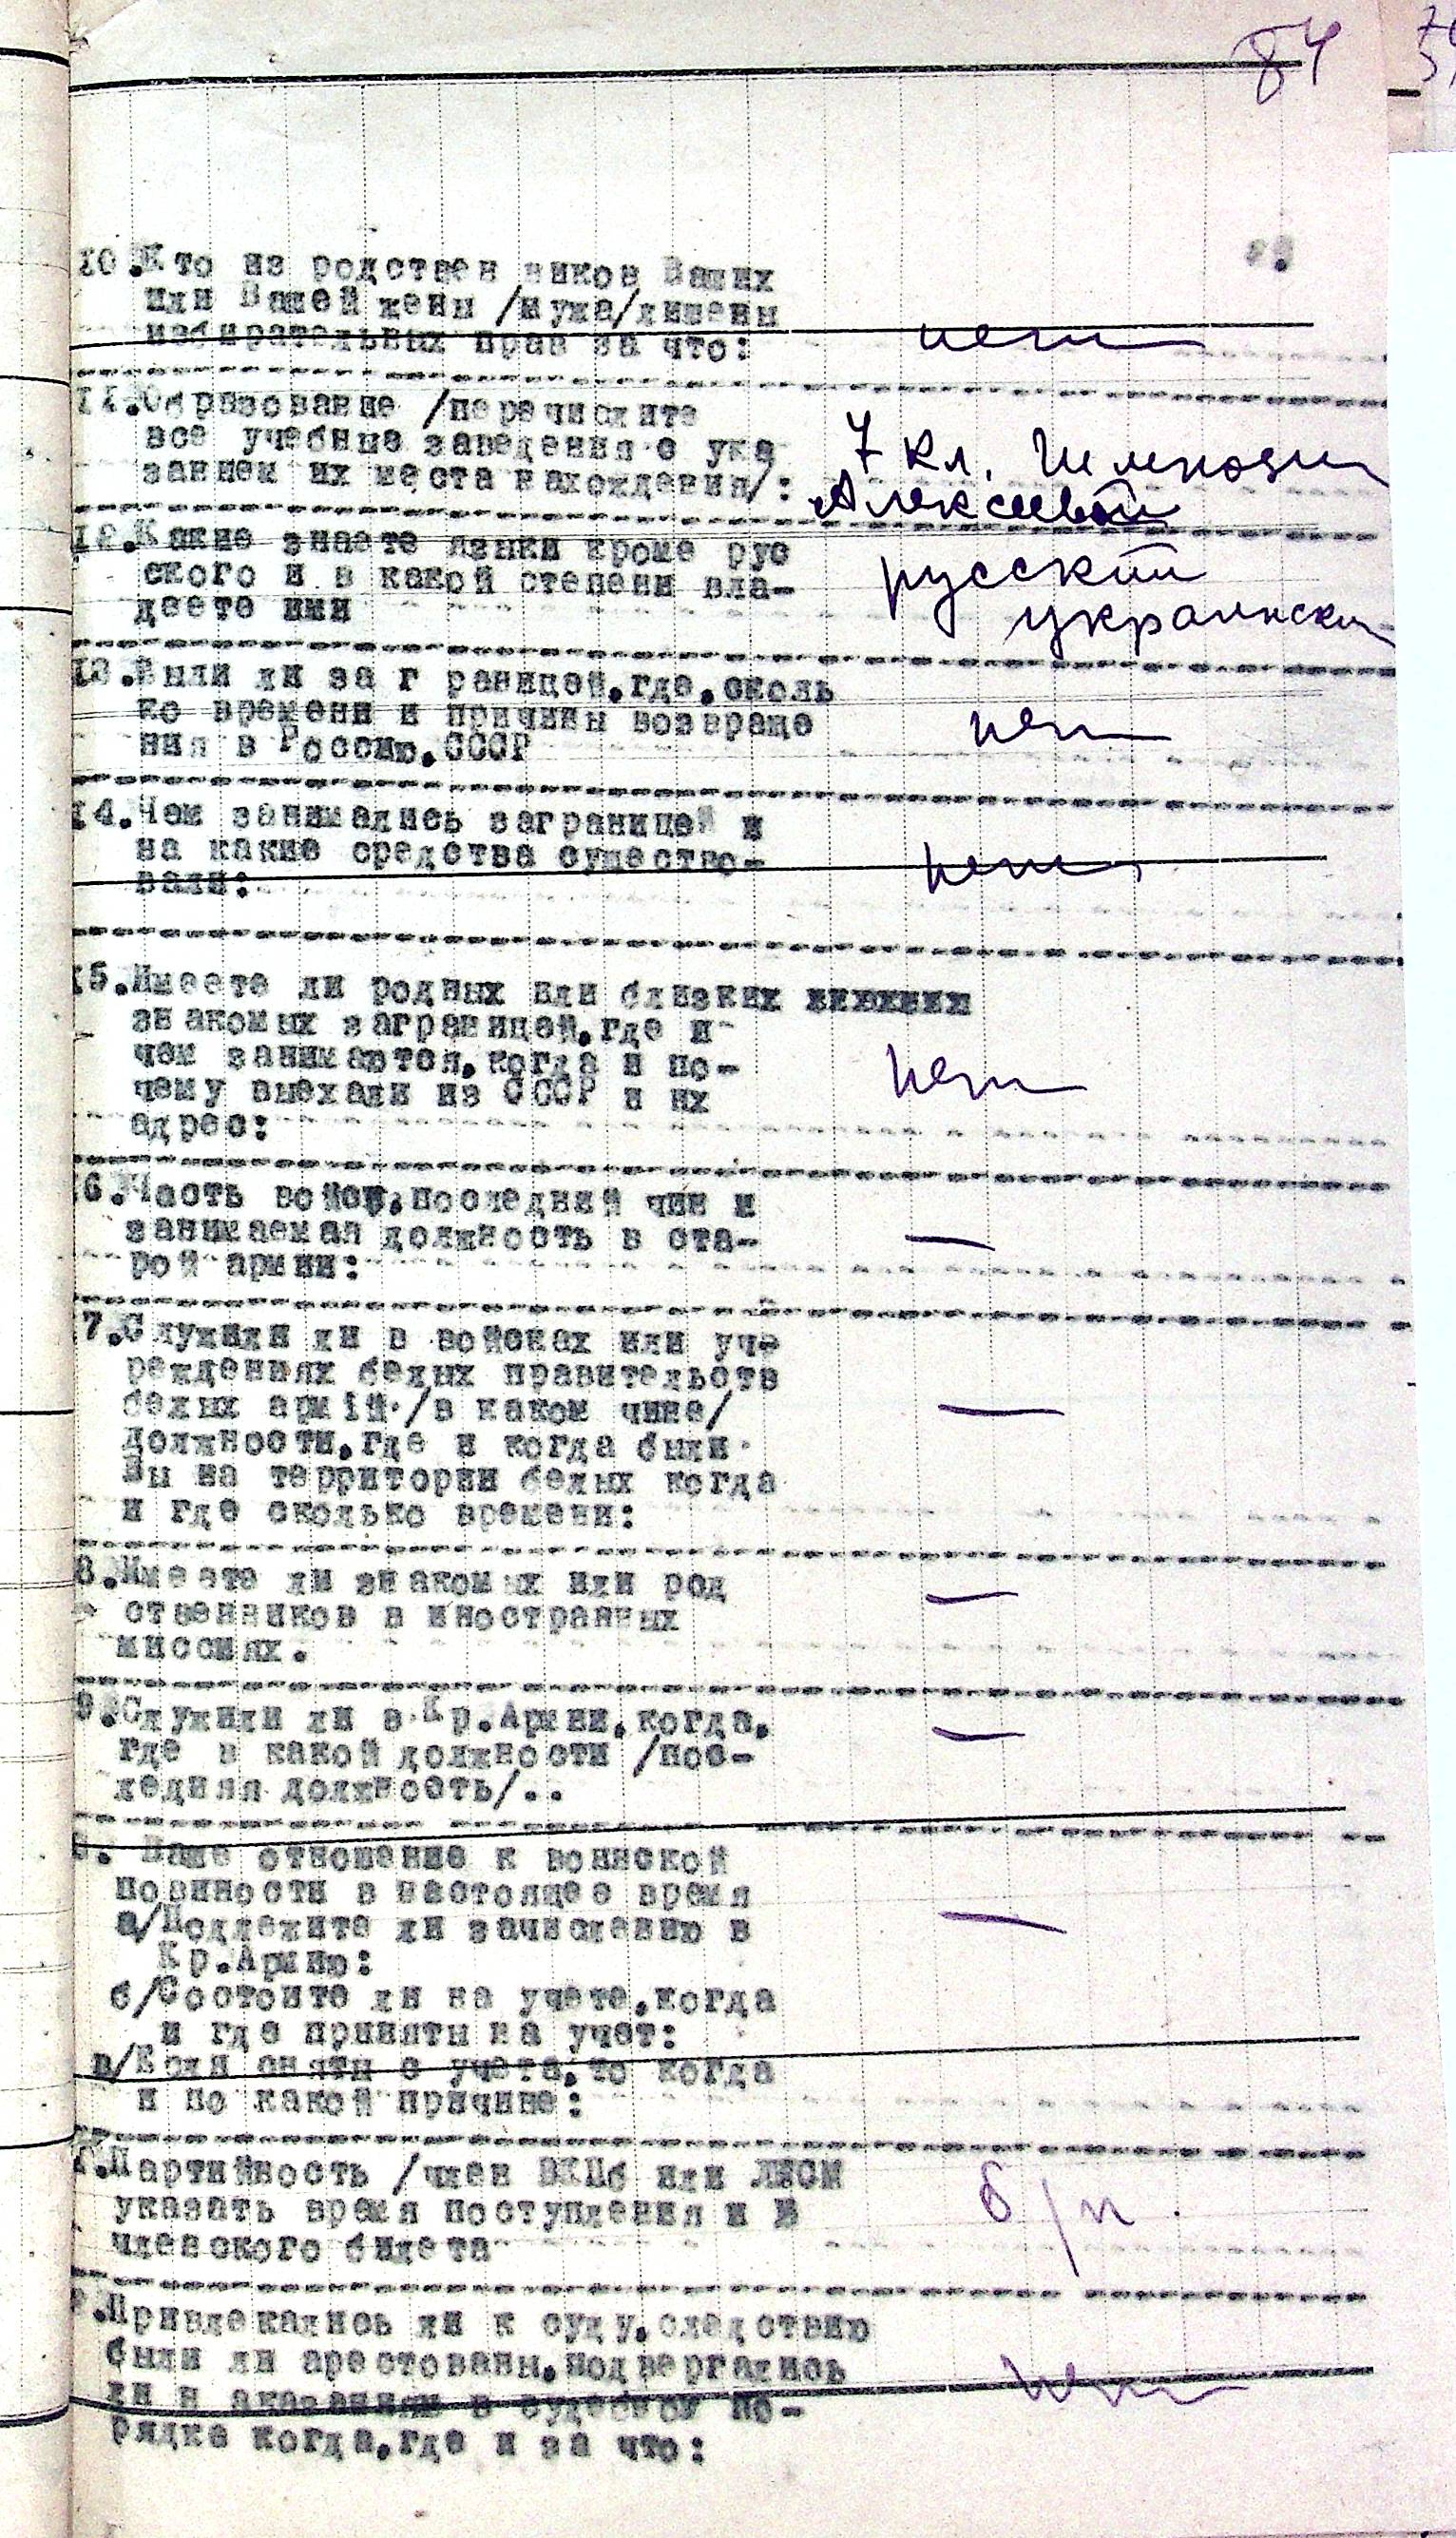 84
10.Кто из родствен ников Ваших
или Вашей жены /мужа/лишены
избирательных прав за что:
нет
11.Образование /перечислите
все учебные заведения с ука
занием их места нахождения/:
7 кл.
Алексеевой
12.Какие знаете языки кроме рус
ского и в какой степени вла-
деете ими
русский
украински
13.Были ли за г раницей,где,сколь
ко времени и причины возвраще
ния в Россию,СССР
нет
14.Чем занимались заграницей и
на какие средства существо-
вали:
нет
15.Имеете ли родных или близких
знакомых заграницей,где и
чем занимаются,когда и по-
чему выехали из СССР и их
адрес:
нет
6.Часть войск,последний чин и
занимаемая должность в ста-
рой армии:
—
7.Служили ли в войсках или уче
реждениях белых правительств
белых армiй /в каком чине/
должности,где и когда были
Вы на территории белых когда
и где сколько времени:
—
8.Имеете ли знакомых или род
ственников в иностранных
миссиях.
—
9.Служили ли в Кр.Армии,когда,
где в какой должности /пос-
ледняя должность/..
—
Ваше отношение к воинской
повиности в настоящее время
а/Подлежите ли зачислению в
Кр.Армию:
—
б/Состоите ли на учете,когда
и где приняты на учет:
в/Если сняты с учета,то когда
и по какой причине:
Партийность /член ВКПб или ЛКСМ
указать время поступления и №
членского билета
б/п.
Привлекались ли к суду,следствию
были ли арестованы,подвергались
ли н аказаниям в судебном по-
рядке когда,где и за что:
нет